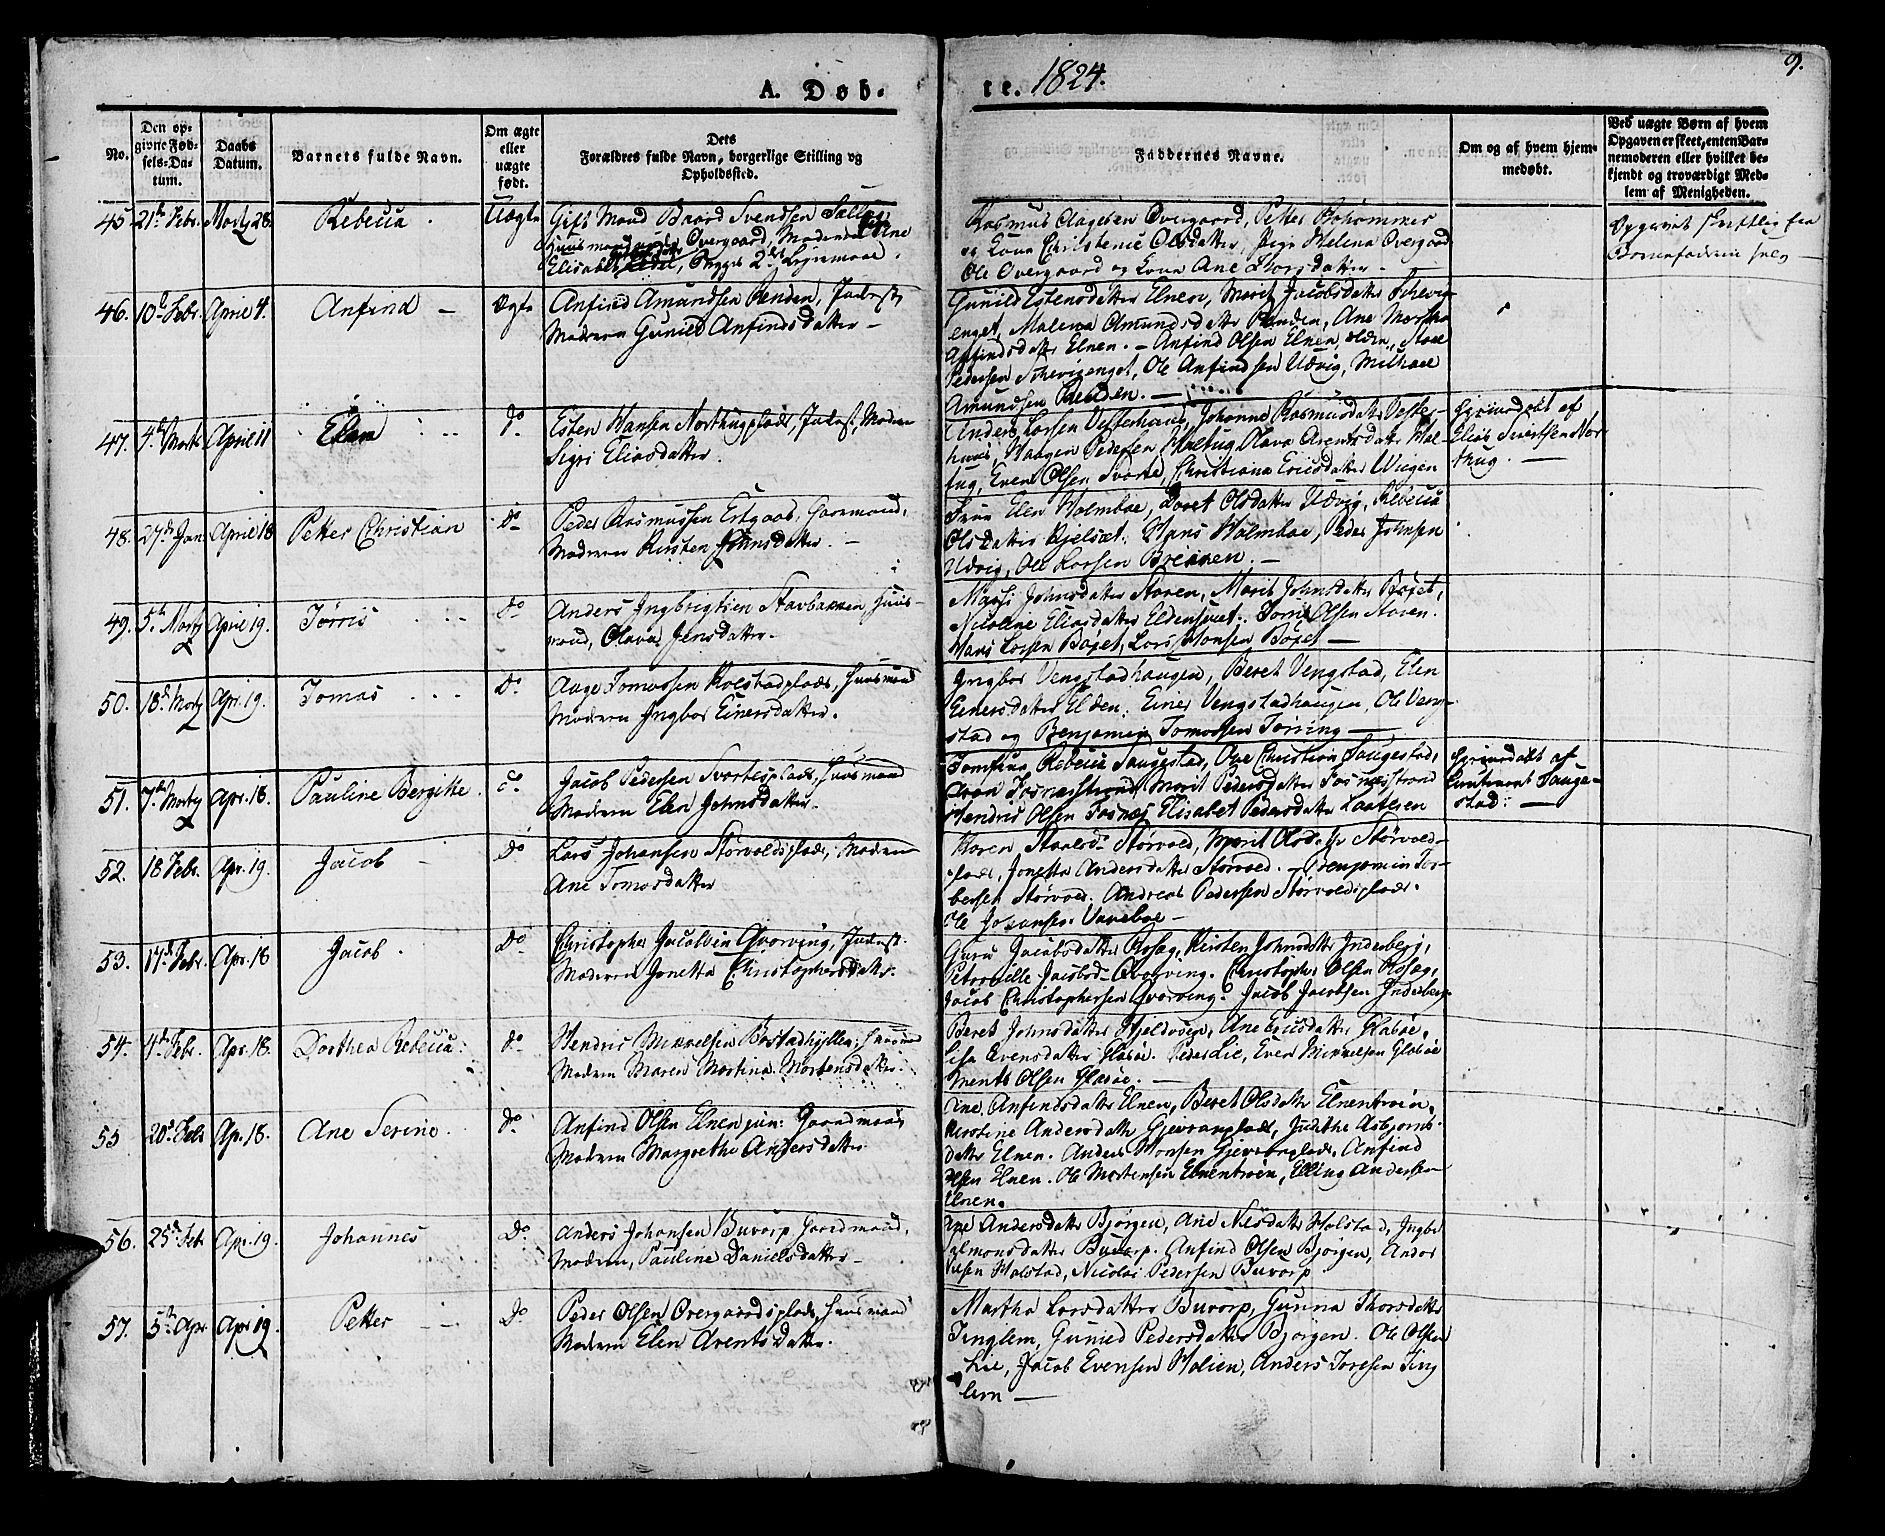 A. Døb-
te. 1824.
9.
No.
Den op-
givne Fød-
sels-Da-
tum.
Daabs
Datum.
Barnets fulde Navn.
Om ægte
eller
uægte
født.
Dets
Forældres fulde Navn, borgerlige Stilling og
Opholdssted.
Faddernes Navne.
Om og af hvem hjem-
medøbt.
Ved uægte Børn af hvem
Opgaven er skeet, enten Bar-
nemoderen eller hvilket be-
kjendt og troværdigt Med-
lem af Menigheden.
45 21de Febr. Marty 28. Rebecca. Uægte
Gift Mand Baard Svendsen
Overgaard, Moderen Ane
Elisabet, 2det Leiermaal.
Rasmus Clagesen Overgaard, Petter
og Kona Christenie Olsdatter, Pige Helena Overgaard
Ole Overgaard og Kona Ane Thorsdatter
Opgivet skriftlig fra
Barnefaderen selv
46. 10de Febr. April 4. Anfind Ægte
Anfind Amundsen Renden, Inderst,
Moderen Gunild Anfindsdatter
Gunild Estensdatter Elnen, Marit Jacobsdatter Schevig-
enget, Malena Amundsdatter Renden, Ane Martha
Anfindsdatter Elnen. - Anfind Olsen Elnen,
Pedersen Schevigenget, Ole Anfindsen Udvig, Michael
Amundsen Renden.
47. 4de Marts April 11 Elen do
Esten Hansen Northugplads, Inderst, Moderen
Sigri Eliasdatter.
Anders Larsen Vesterhaus, Johanna Rasmusdatter Vester-
huus, Haagen Pedersen Haltug, Olava Arentsdatter Hal-
tug, Even Olsen Svarte, Christiana Ericsdatter Wigen
Hjemdøbt af
Elias Sivertsen Nor
thug.
48. 27de Jan April 18 Petter Christian Do
Peder Rasmussen Estgaard, Gaardmand,
Moderen Kirsten Hansdatter.
Frue Elen Holmboe, Beret Olsdatter Udvig, Rebecca
Olsdatter Kjelsæt. Hans Holmboe, Peder Johnsen
Udvig, Ole Larsen Breinen.
49. 5te Marty April 19. Tørris do
Anders Ingbrigtsen Stavbakken, Huus-
mand, Olava Jensdatter.
Massi Johnsdatter Staven, Marit Johnsdatter Bøxet,
Nicoline Eliasdatter Eldensvet. Tørris Olsen Staven.
Hans Larsen Bøxet, Lars Hansen Bøxet
50. 18de Marty Apr. 19. Tomas Do
Aage Tomassen Kolstadplads, Huusmand
Moderen Ingbor Einersdatter.
Ingbor Vengstadhaugen, Beret Vengstad, Elen
Einersdatter Elden. Einer Vengstadhaugen, Ole Veng-
stad og Benjamin Tomassen Tørring
51. 7de Marty Apr. 18. Pauline Bergitte. do
Jacob Pedersen Svartesplads, Huusmand
Moderen Elen Johnsdatter.
Jomfrue Rebecca Saugestad, Ove Christian Saugestad,
Aron Fosnæsstrand, Marit Pedersdatter Fosnæsstrand
Hendric Olsen Fosnæs, Elisabet Pedersdatter
Hjemmedøbt af
Lieutenant Sauge-
stad.
52. 18 Febr. Apr. 19. Jacob Do
Lars Johansen Størvoldsplads, Moderen
Ane Tomasdatter
Størvold, Marit Olsd. Størvold-
plads, Jonetta Andersdatter Størvold. Benjamin Tor-
bersen Størvold. Andreas Pedersen Størvoldsplads.
Ole Johansen
53. 17de Febr. Apr. 18 Jacob. Do
Christopher Jacobsen Qvarving, Inderst.
Moderen Jonetta Christophersdatter.
Guru Jacobsdatter Rosæg, Kirsten Johnsdatter Inderberg,
Petronelle Jacobsd. Qvarving. Christopher Olsen Rosæg,
Jacob Christophersen Qvarving. Jacob Jacobsen Inderberg
54. 4de Febr. Apr. 18. Dorthea Rebecca. do
Hendric Mikkelsen Bastadhyllen, Huusmand
Moderen Maren Martina Mortensdatter.
Beret Johnsdatter Hjeldvoen, Ane Ericsdatter Glasøe.
Lisa Evensdatter Glasøe. Peder Lie, Even Mikkelsen Glasøe
Ments Olsen Glasøe.
55 20de Febr Ap. 18. Ane Serine. do
Anfind Olsen Elnen jun: Gaardmand,
Moderen Margrethe Andersdatter
Ane Anfindsdatter Elnen, Beret Olsdatter Elnentrøen,
Kirstine Andersdatter Gjevranplads, Judithe Asbjørns-
datter Elnen. Anders Hansen Gjevranplads, Anfind
Olsen Elnen. Ole Mortensen Elnentrøen, Elling Andersen
Elnen.
56. 25de Feb Apr. 19. Johannes Do
Anders Johansen Buvarp Gaardmand,
Moderen, Pauline Danielsdatter
Ane Andersdatter Bjørgen, Ane Nilsdatter Holstad, Ingbor
Salmonsdatter Buvarp. Anfind Olsen Bjørgen, Anders
Olsen Holstad, Nicolai Pedersen Buvarp
57. 5te Apr Apr 19. Petter Do
Peder Olsen Overgaardsplads, Huusmand
Moderen Elen Arentsdatter.
Martha Larsdatter Buvarp, Gunna Thorsdatter
Tinglem, Gunild Pedersdatter Bjørgen. Ole Olsen
Lie, Jacob Evensen Holien, Anders Toresen Ting
lem